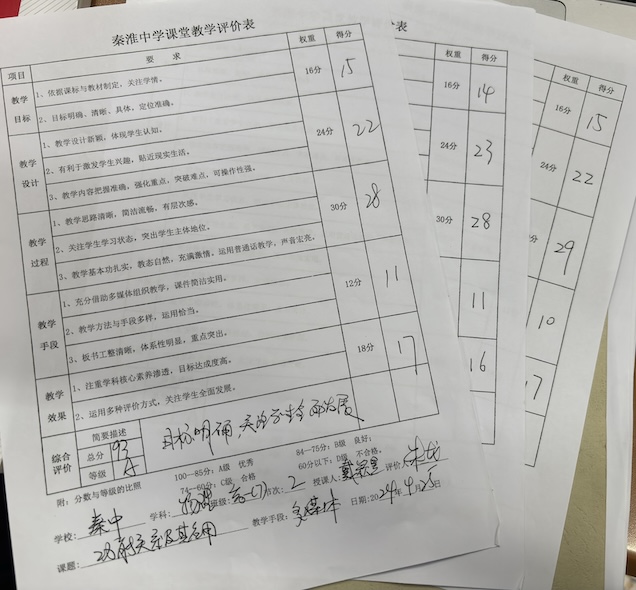 秦淮中学课堂教学评价表
项目 要 求 权重 得分
教学目标 1、依据课标与教材制定，关注学情。 16分 15
2、目标明确、清晰、具体，定位准确。
教学设计 1、教学设计新颖，体现学生认知。 24分 22
2、有利于激发学生兴趣，贴近现实生活。
3、教学内容把握准确，强化重点，突破难点，可操作性强。
教学过程 1、教学思路清晰，简洁流畅，有层次感。 30分 28
2、关注学生学习状态，突出学生主体地位。
3、教学基本功扎实，教态自然，充满激情，运用普通话教学，声音宏亮。
教学手段 1、充分借助多媒体组织教学，课件简洁实用。 12分 11
2、教学方法与手段多样，运用恰当。
3、板书工整清晰，体系性明显，重点突出。
教学效果 1、注重学科核心素养渗透，目标达成度高。 18分 17
2、运用多种评价方式，关注学生全面发展。
综合评价 简要描述 目标明确，关注学生全面发展
总分 93
等级 A
附：分数与等级的比照 100—85分：A级 优秀 84—75分：B级 良好；
74—60分：C级 合格 60分以下：D级 不合格。
学校：秦中 学科：物理 班级： 节次：2 授课人： 评价人： 
课题： 教学手段：多媒体 日期：2024年4月25日
表
权重 得分
16分 14
24分 23
30分 28
11
16
权重 得分
16分 15
24分 22
分 29
10
17